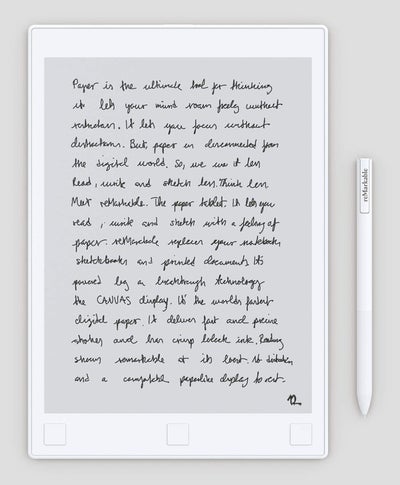 Paper is the ultimate tool for thinking
it lets your mind roam freely without
restrictions. It lets you focus without
distractions. But, paper is disconnected from
the digital world. So, we use it less
Read, write and sketch less. Think less
Meet reMarkable. The paper tablet. It lets you
read, write and sketch with a feeling of
paper. reMarkable replaces your notebooks
sketchbooks and printed documents. It's
powered by a breakthrough technology
the CANVAS display. It's the world's fastest
digital paper. It delivers fast and precise
strokes and has crisp black ink. Reading
shows remarkable at its best. No distractions
and a comfortable paperlike display to rest.
reMarkable